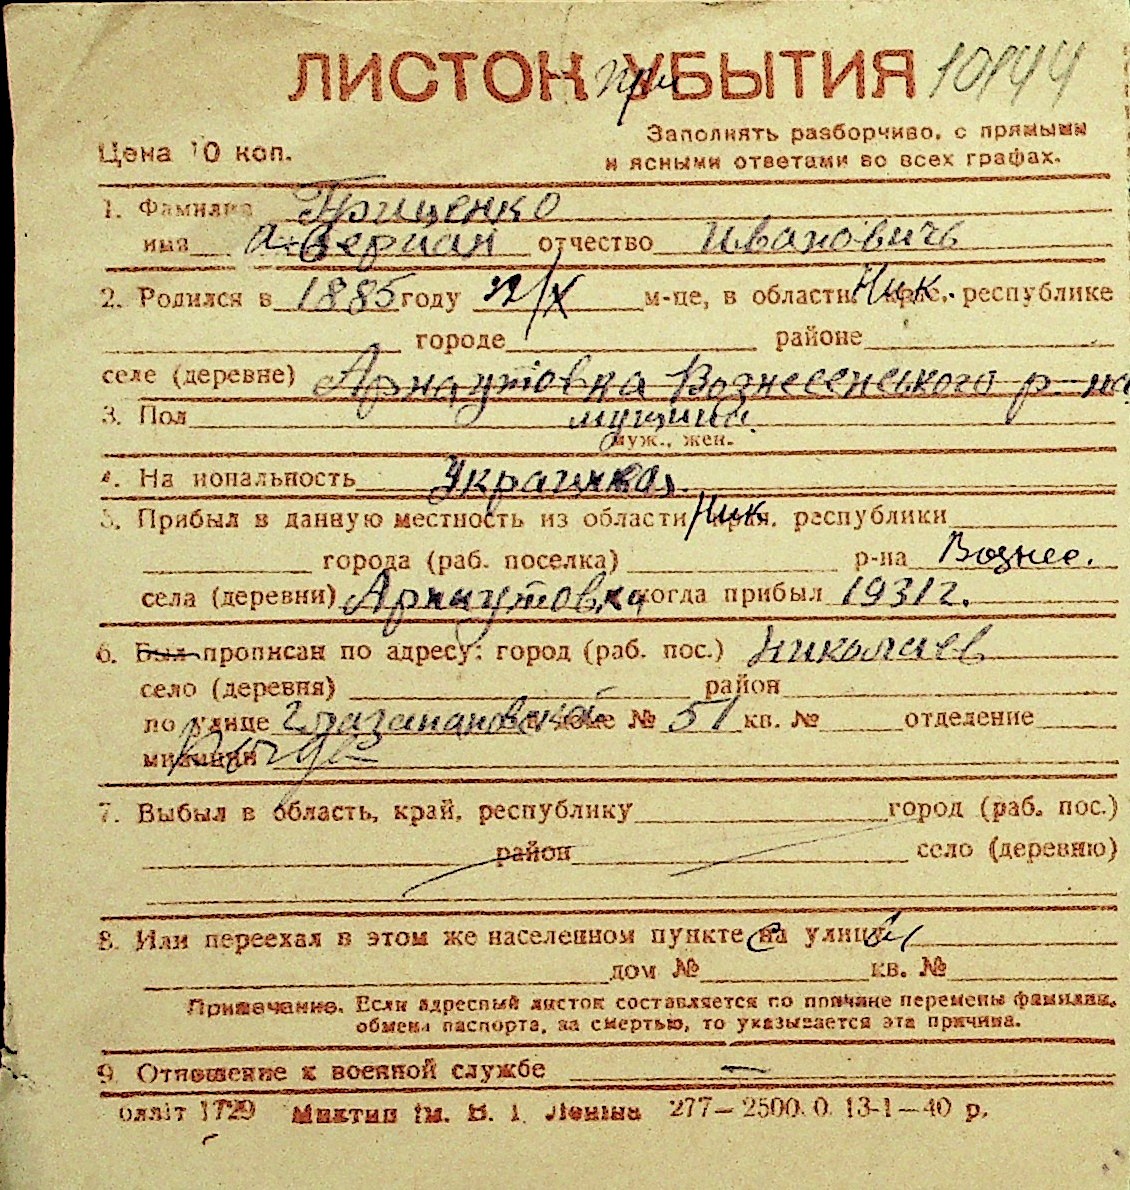 ЛИСТОК при УБЫТИЯ 10144
Цена 10 коп.
Заполнять разборчиво, с прямыми
и ясными ответами во всех графах.
1. Фамилия Гриценко
имя Авериан отчество Ивановичь
2. Родился в 1885 году /X м-це, в области Ник. крае, республике
городе районе
селе (деревне) Арнаутовка Вознесенского р-на
3. Пол
муж., жен.
4. Национальность
5. Прибыл в данную местность из области Ник края, республики
города (раб. поселка) р-на Вознес.
села (деревни) Арнаутовка когда прибыл 1931г.
6. Был прописан по адресу: город (раб. пос.) Николаев
село (деревня) район
по улице доме № 51 кв. № отделение
милиции
7. Выбыл в область, край, республику город (раб. пос.)
район село (деревню)
8. Или переехал в этом же населенном пункте на улицу
дом № кв. №
Примечание. Если адресный листок составляется по причине перемены фамилии,
обмена паспорта, за смертью, то указывается эта причина.
9. Отношение к военной службе —
олліт 1729 Миктип ім. В. І. Леніна 277—2500. О. 13-1—40 р.